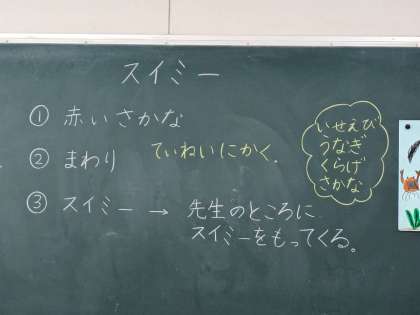 スイミー
① 赤いさかな
② まわり ていねいにかく.
③ スイミー → 先生のところに
スイミーをもってくる。
いせえび
うなぎ
くらげ
さかな